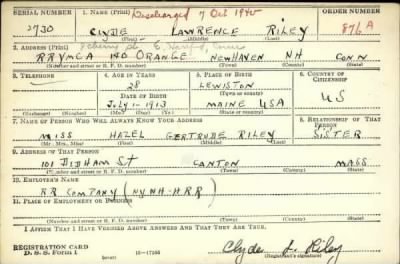 SERIAL NUMBER 1. NAME (Print) Discharged 7 Oct 1940 ORDER NUMBER
2730 CLYDE LAWRENCE RILEY 876A
(First) (Middle) (Last)
2. ADDRESS (Print)
RRYMCA ORANGE NEW HAVEN NH CONN
(Number and street or R. F. D. number) (Town) (County) (State)
3. TELEPHONE 4. AGE IN YEARS 5. PLACE OF BIRTH 6. COUNTRY OF CITIZENSHIP
28 LEWISTON
DATE OF BIRTH (Town or county) US
JULY 1-1913 MAINE USA
(Exchange) (Number) (Mo.) (Day) (Yr.) (State or country)
7. NAME OF PERSON WHO WILL ALWAYS KNOW YOUR ADDRESS 8. RELATIONSHIP OF THAT PERSON
MISS HAZEL GERTRUDE RILEY SISTER
(Mr., Mrs., Miss) (First) (Middle) (Last)
9. ADDRESS OF THAT PERSON
101 DEDHAM St CANTON MASS
(Number and street or R. F. D. number) (Town) (County) (State)
10. EMPLOYER'S NAME
RR COMPANY (NYNH-HRR)
11. PLACE OF EMPLOYMENT OR BUSINESS
(Number and street or R. F. D. number) (Town) (County) (State)
I AFFIRM THAT I HAVE VERIFIED ABOVE ANSWERS AND THAT THEY ARE TRUE.
REGISTRATION CARD
D. S. S. Form 1 (over) Clyde L. Riley
(Registrant's signature)